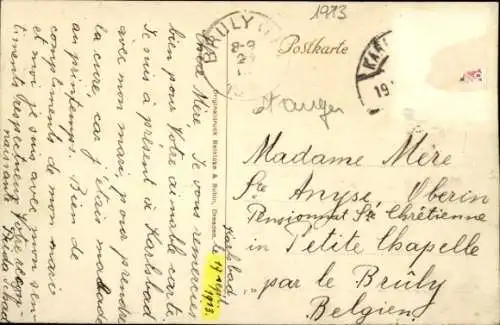 1913
Postkarte
BRÛLY
8-9
KARL
19
Madame Mère
Ste Anyse, Oberin
Pensionnat Ste Chrétienne
in Petite Chapelle
par le Brûly
Belgien
Karlsbad,
le 17 sept.
1913.
Chère Mère, Je vous remercie
bien pour Votre aimable carte.
Je suis à présent à Karlsbad
avec mon mari, pour prendre
la cure, car j'étais malade
au printemps. Bien de
compliments de mon mari
et moi je suis avec mon sen-
timents respectueux Votre recon-
naissante Frieda
Originaldruck Reinicke & Rubin, Dresden.